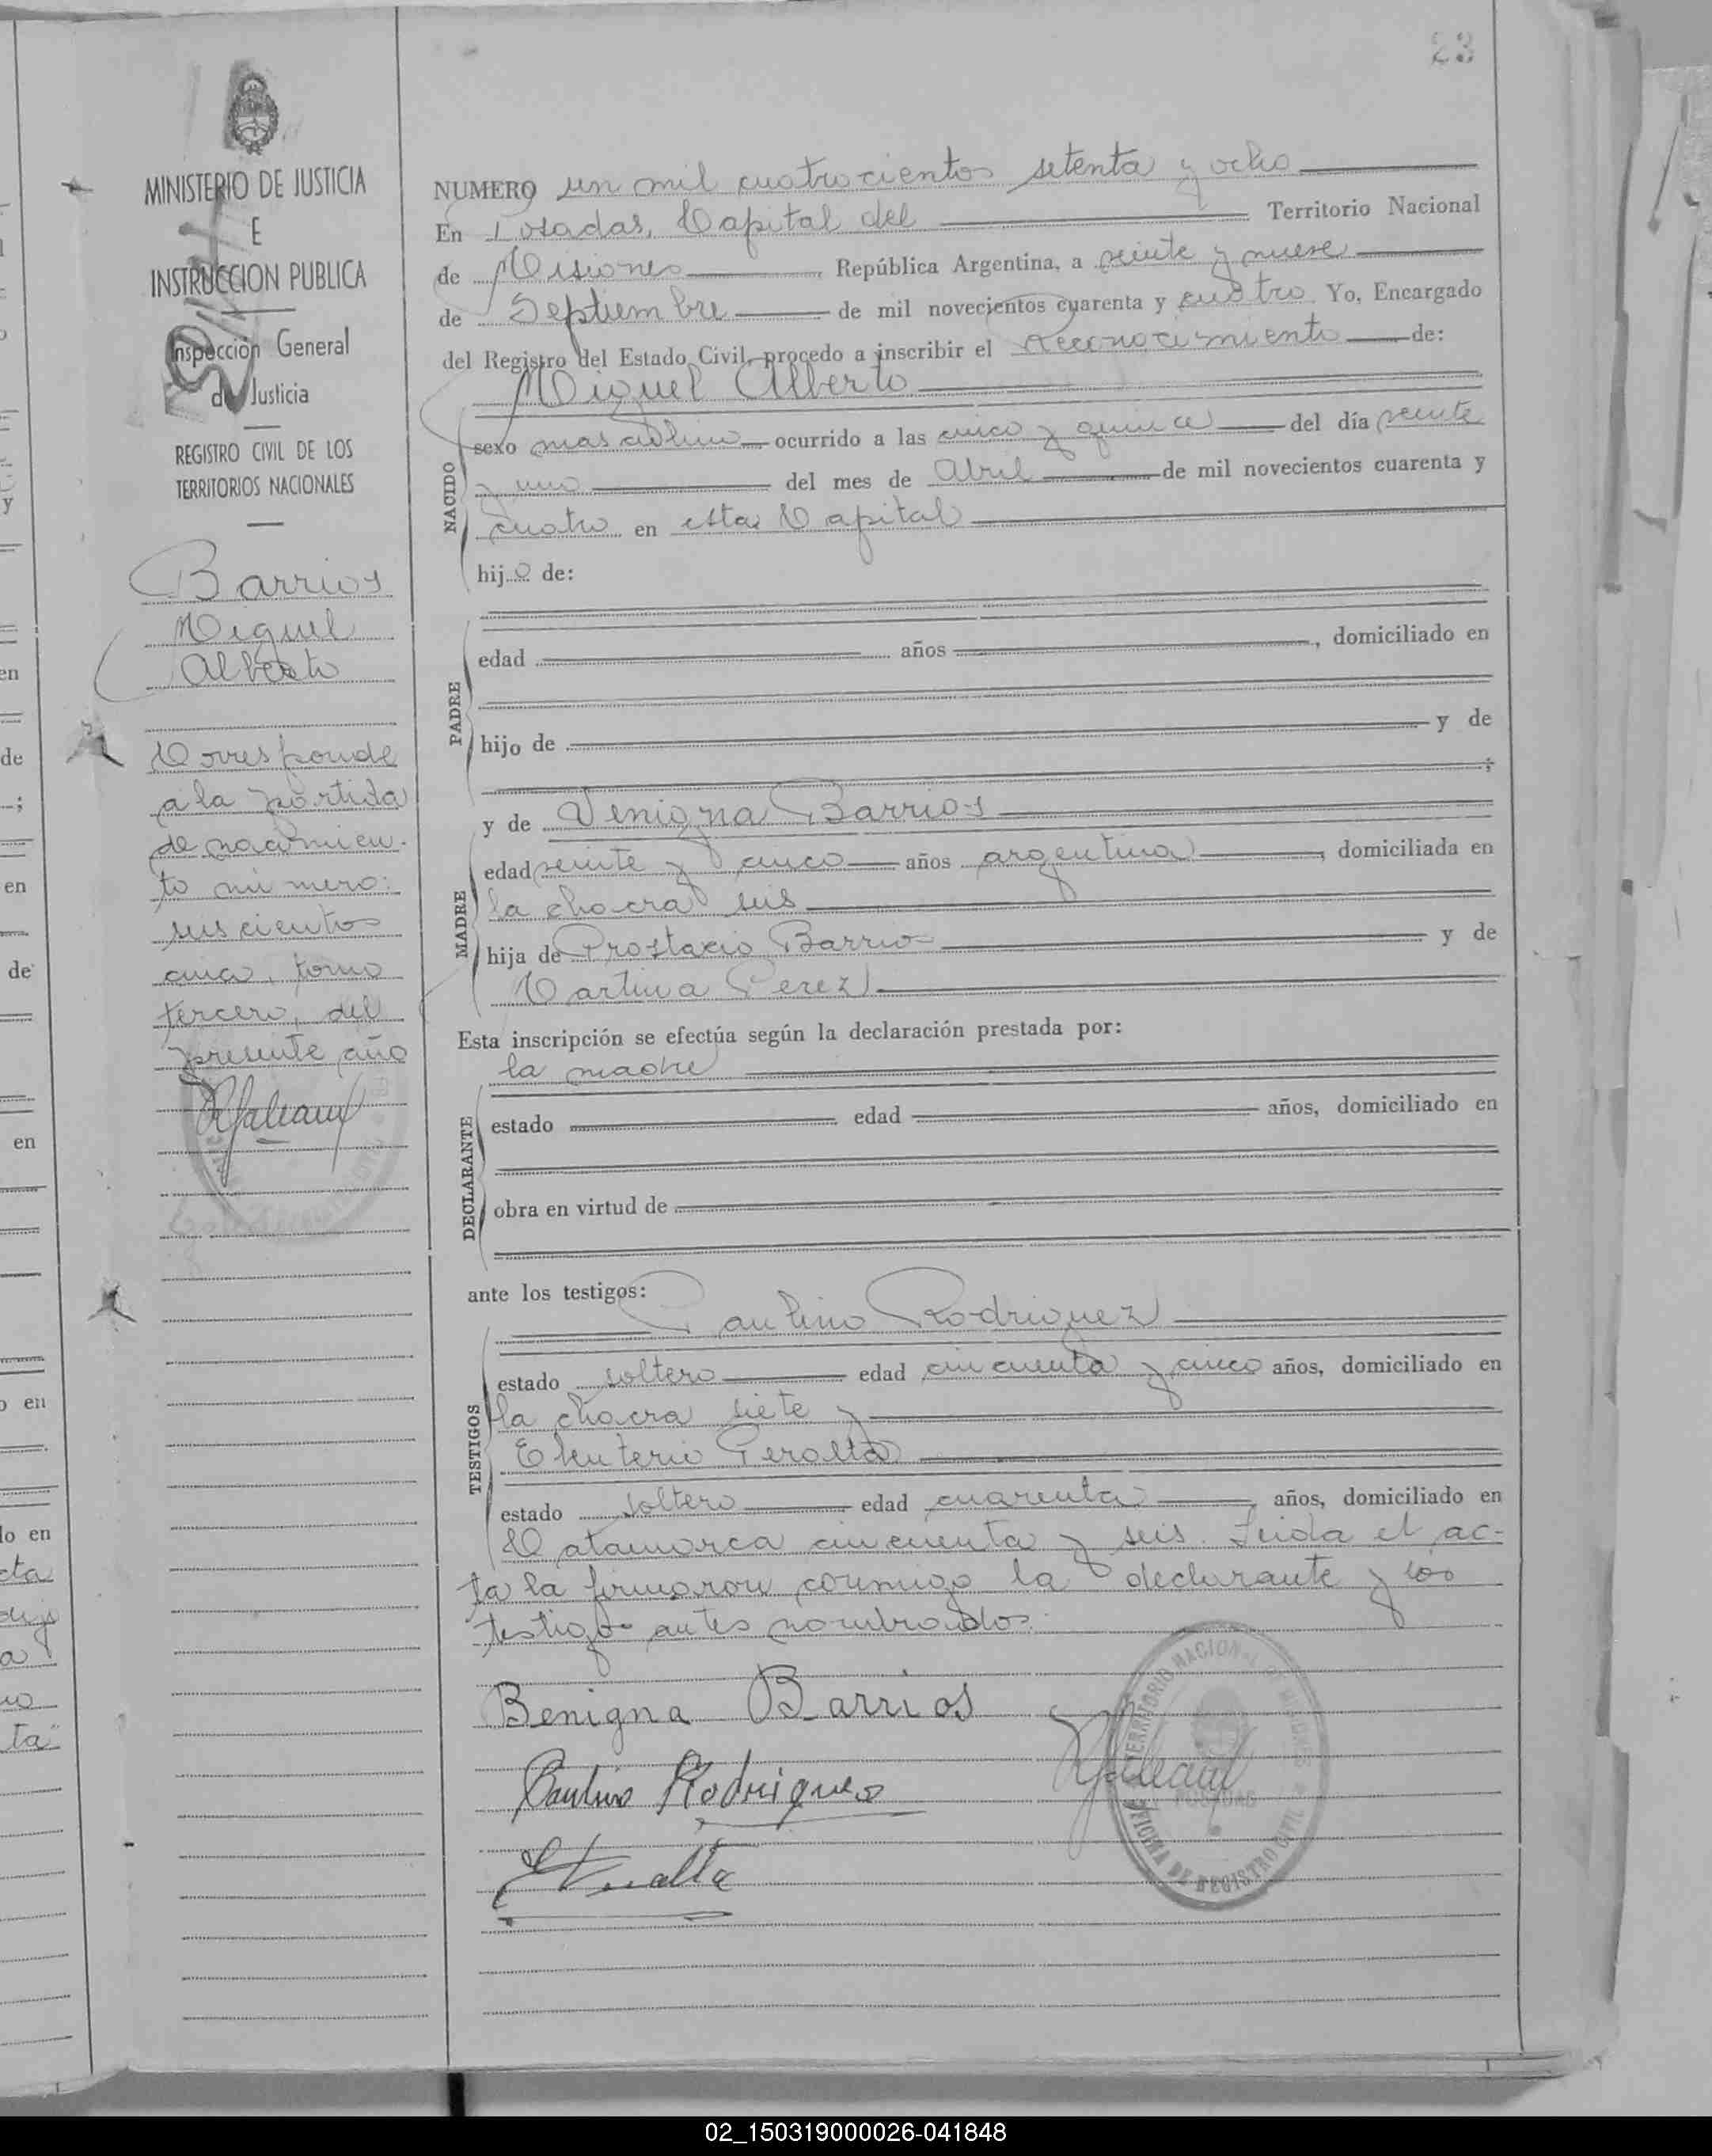 23
MINISTERIO DE JUSTICIA
E
INSTRUCCION PUBLICA
Inspección General
de Justicia
REGISTRO CIVIL DE LOS
TERRITORIOS NACIONALES
Barrios
Miguel
Alberto
Corresponde
a la partida
de nacimien-
to número:
seiscientos
cinco, tomo
tercero, del
presente año
NUMERO un mil cuatrocientos setenta y ocho
En Posadas, Capital del Territorio Nacional
de Misiones República Argentina, a veinte y nueve
de Septiembre de mil novecientos cuarenta y cuatro Yo, Encargado
del Registro del Estado Civil, procedo a inscribir el Reconocimiento de:
Miguel Alberto
NACIDO
sexo masculino ocurrido a las cinco y quince del día veinte
y uno del mes de Abril de mil novecientos cuarenta y
cuatro en esta Capital
hijo de:
PADRE
edad años , domiciliado en
hijo de y de
;
MADRE
y de Venigna Barrios
edad veinte y cinco años argentina, domiciliada en
la chacra seis
hija de Protacio Barrio y de
Martina Perez
Esta inscripción se efectúa según la declaración prestada por:
la madre
DECLARANTE
estado edad años, domiciliado en
obra en virtud de
ante los testigos:
Paulino Rodriguez
TESTIGOS
estado soltero edad cincuenta y cinco años, domiciliado en
la chacra siete y
Eleuterio Peralta
estado soltero edad cuarenta años, domiciliado en
Catamarca cincuenta y seis. Leida el ac-
ta la firmaron conmigo la declarante y los
testigos antes nombrados.
Benigna Barrios
Paulino Rodriguez
TERRITORIO NACIONAL DE MISIONES
POSADAS
OFICINA DE REGISTRO CIVIL
02_150319000026-041848